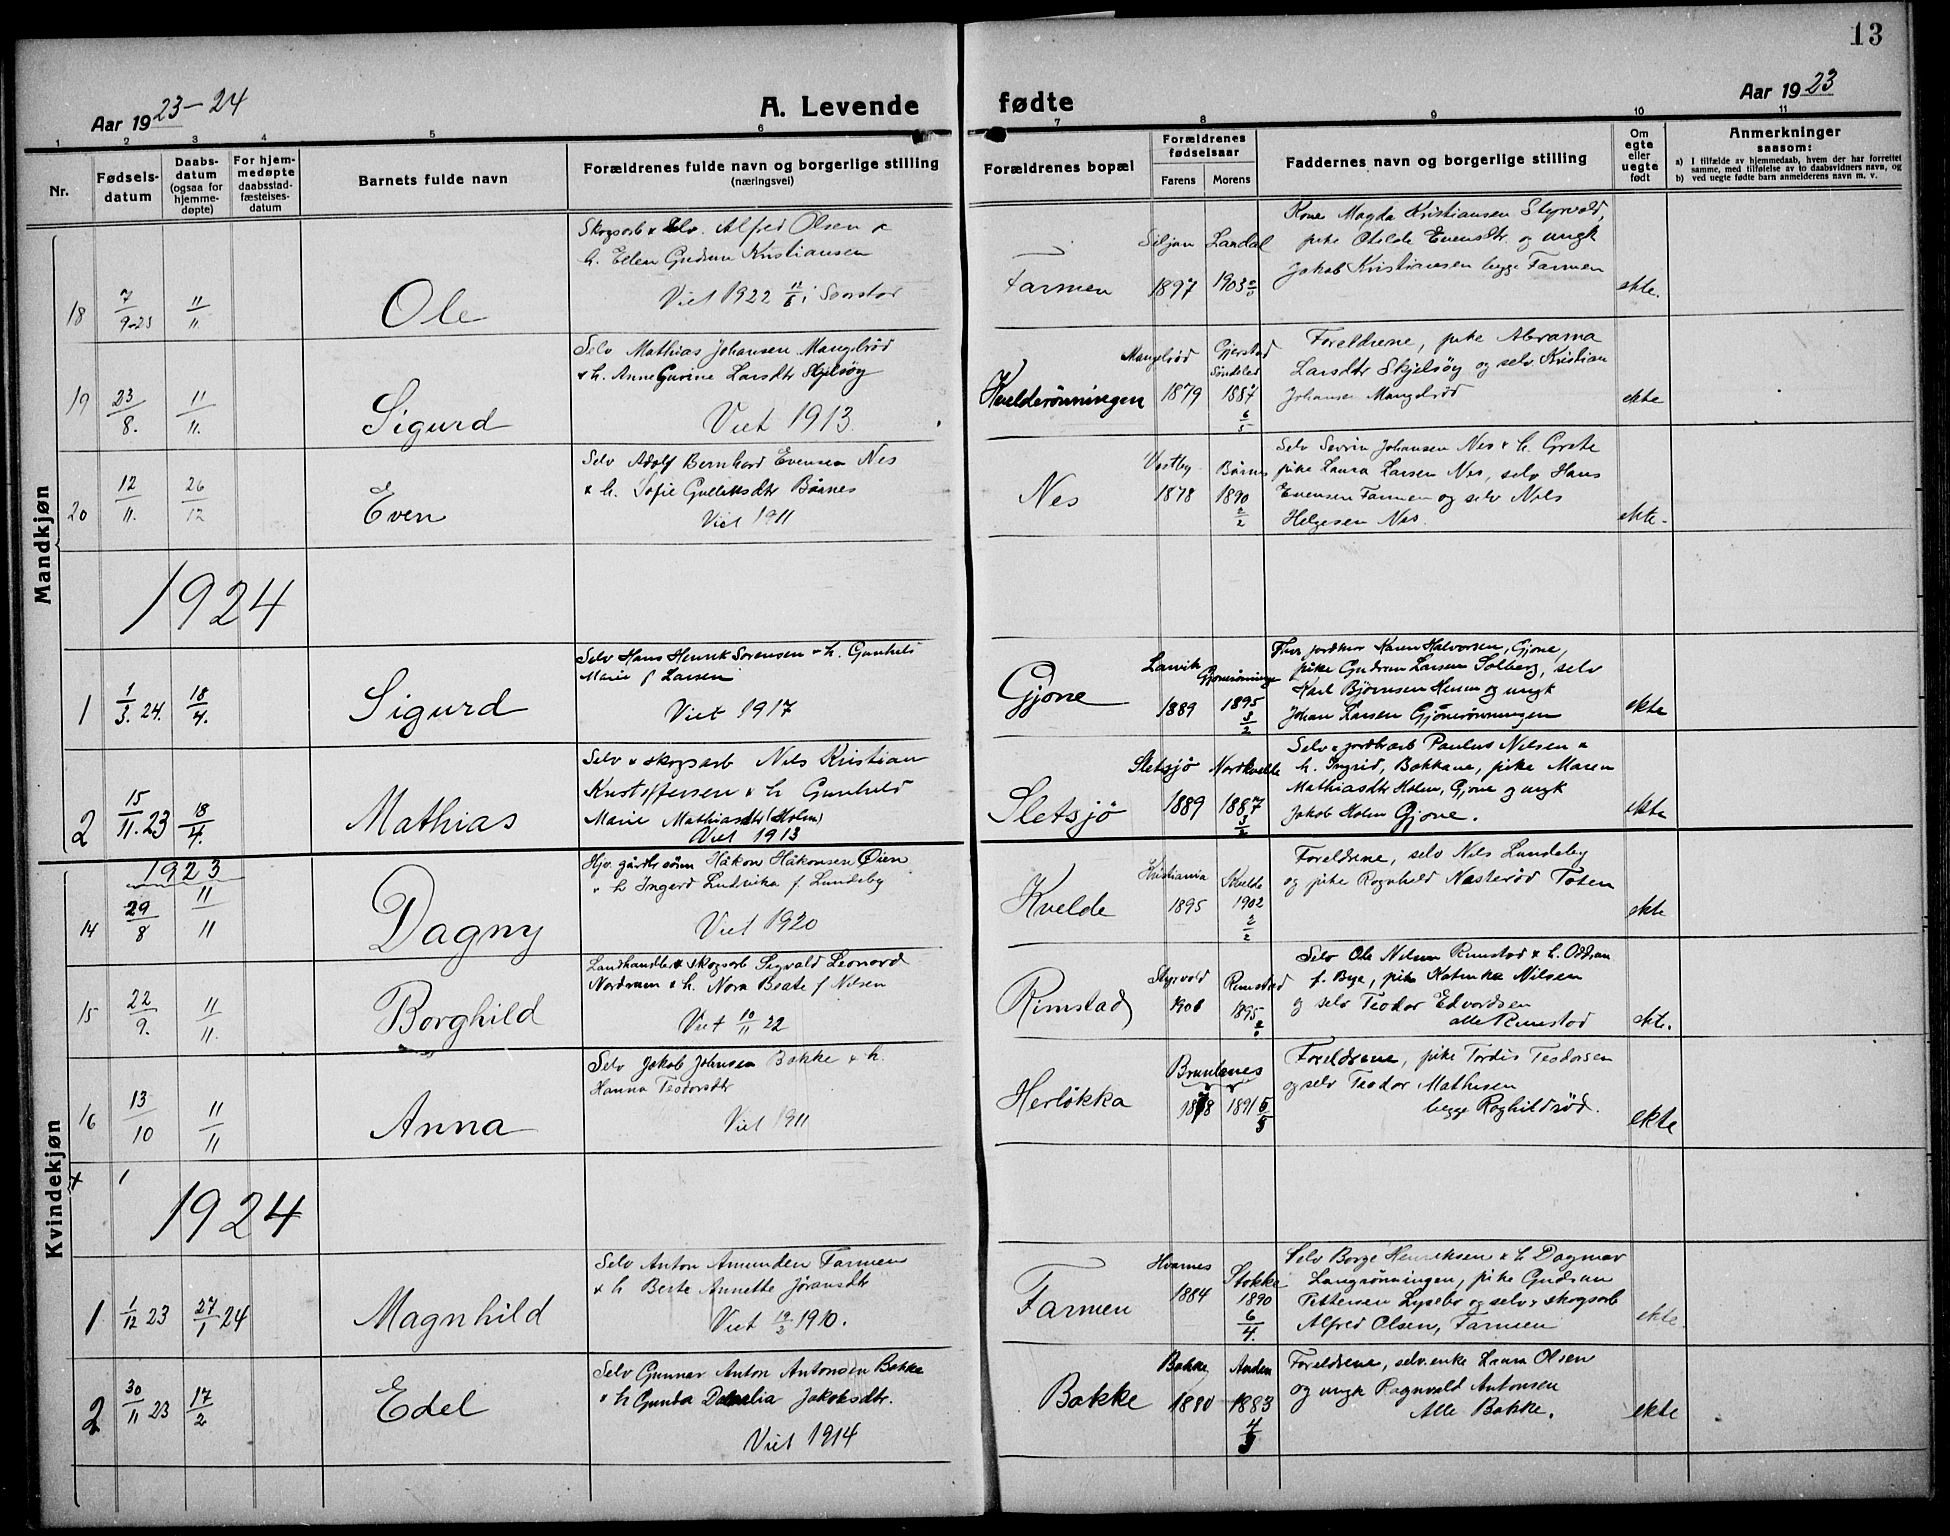 13
Aar 1923-24
A. Levende
fødte
Aar 1923
1 2 3 4 5 6 7 8 9 10 11
Nr.
Fødsels-
datum
Daabs-
datum
(ogsaa for
hjemme-
døpte)
For hjem-
medøpte
daabsstad-
fæstelses-
datum
Barnets fulde navn
Forældrenes fulde navn og borgerlige stilling
(næringsvei)
Forældrenes bopæl
Forældrenes
fødselsaar
Farens Morens
Faddernes navn og borgerlige stilling
Om
egte
eller
uegte
født
Anmerkninger
saasom:
a) I tilfælde av hjemmedaab, hvem der har forrettet
samme, med tilføielse av to daabsvidners navn, og
b) ved uegte fødte barn anmelderens navn m. v.
Mandkjøn
18 7/9-23 11/11 Ole
Skogsarb & selv. Alfred Olsen &
h. Ellen Gudrun Kristiansen
Viet 1922 i
Farmen
Siljan 1897
Landal 1903
Kone Magda Kristiansen Styrvold,
pike Otilde Evensdtr. og ungk
Jakob Kristiansen begge Farmen
ekte.
19 23/8. 11/11. Sigurd
Selv Mathias Johansen Mangelrød
& h. Anne Gurine Larsdtr Skjelsøy
Viet 1913
Kvelderönningen
Mangelrød 1879
Gjerstad
Söndeled
1887
6/5
Foreldrene, pike Abrama
Larsdtr Skjelsöy og selv Kristian
Johansen Mangelröd
ekte
20 12/11. 26/12 Even
Selv Adolf Bernhard Evensen Nes
& h. Sofie Gullettsdtr Bårnes
Viet 1911
Nes
Vestby 1878
Bårnes 1890
2/2
Selv Sevrin Johansen Nes & h. Grete
pike Laura Larsen Nes, selv Hans
Evensen Farmen og selv Nils
Helgesen Nes.
ekte.
1924
1 1/3. 24. 18/4. Sigurd
Selv Hans Henrik Sorensen & h. Gunhild
Marie f Larsen
Viet 1917
Gjone
Larvik 1889
Gjonerönninge 1895
3/2
jordbr Karen Halvorsen, Gjone,
pike Gudrun Larsen Solberg, selv
Karl Bjørnsen Heum og ungk
Johan Larsen Gjönerönningen
ekte
2 15/11. 23 18/4. Mathias
Selv & skogsarb Nils Kristian
Kristoffersen & h Gunhild
Marie Mathiasdtr (Holm)
Viet 1913
Sletsjø
Sletsjø 1889
Nordkvelde 1887
3/2
Selv & jordbarb Paulus Nilsen &
h. Ingrid, Bakkane, pike Maren
Mathiasdtr Holm, Gjone og ungk
Jakob Holm Gjone.
ekte
Kvindekjøn
1923
14 29/8 11/11 Dagny
Hjv. gårdbr sönn Håkon Håkonsen Øien
& h Ingerd Ludvika f. Lundeby
Viet 1920
Kvelde
Kristiania 1895
Kvelde 1902
2/2
Foreldrene, selv Nils Lundeby
og pike Ragnhild Nesteröd Toten
ekte
15 22/9. 11/11. Borghild
Landhandler & skogsarb Sigvald Leonard
Nordrum & h. Nora Beate f Nilsen
Viet 10/11 22
Rimstad
Styrvold 1901
Rimstad 1895
Selv Ole Nilsen Rimstad & h. Oddrun
f. Bye, pike Katinka Nilsen
og selv Teodor Edvardsen
alle Rimstad
ekte.
16 13/10 11/11 Anna
Selv Jakob Johnsen Bakke & h.
Hanna Teodorsdtr
Viet 1911
Herløkka
Brunlanes
1878 1891
5/5
Foreldrene, pike Tordis Teodorsen
og selv Teodor Mathisen
begge Roghildröd.
ekte
1924
1 1/12 23 27/1 24 Magnhild
Selv Anton Amunden Farmen
& h Berte Annette Jöransdtr
Viet 12/2 1910.
Farmen
Hvarnes 1884
Stokke 1890
6/4.
Selv Borge Henriksen & h Dagmar
Langrönningen, pike Gudrun
Pettersen Lysebo og selv & skogsarb
Alfred Olsen, Farmen
ekte
2 30/11 23 17/2 Edel
Selv Gunnar Anton Antonsen Bakke
& h Gunda Jakobsdtr.
Viet 1914
Bakke
Bakke 1880
1883
Foreldrene, selv.enke Laura Olsen
og ungk Ragnvald Antonsen
Alle Bakke.
ekte